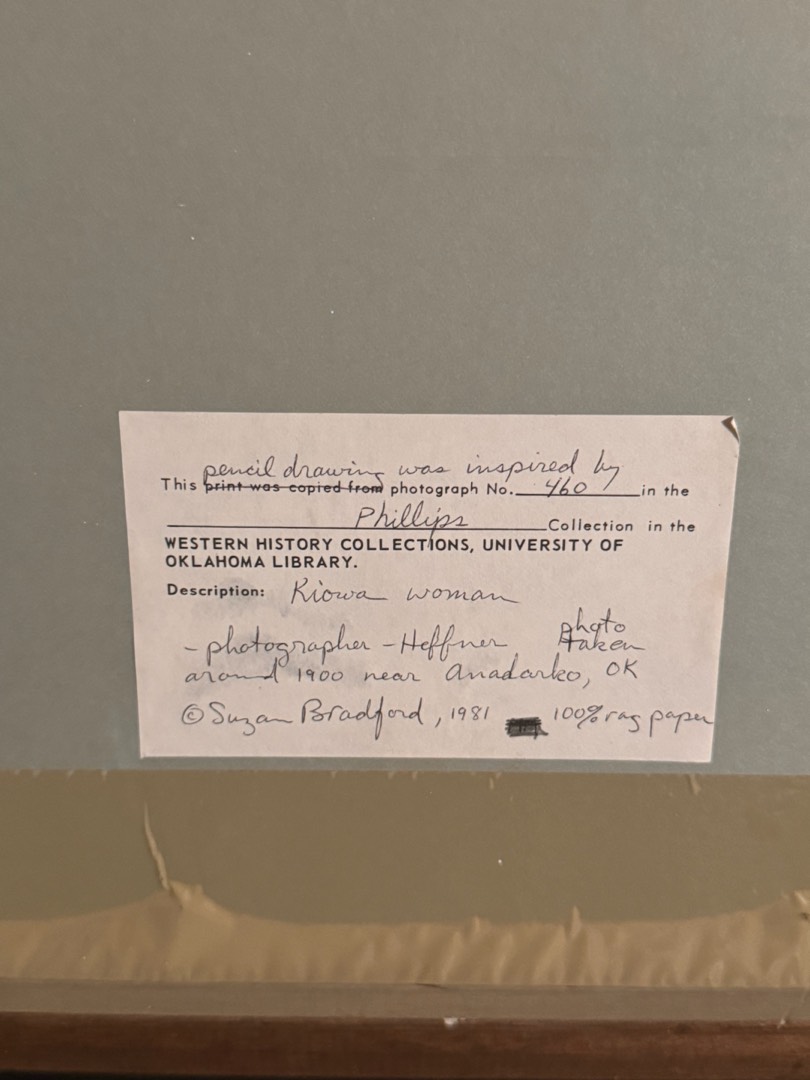 pencil drawing was inspired by
This print was copied from photograph No. 460 in the
Phillips Collection in the
WESTERN HISTORY COLLECTIONS, UNIVERSITY OF
OKLAHOMA LIBRARY.
Description: Kiowa woman
- photographer - Heffner photo taken
around 1900 near Anadarko, OK
© Suzan Bradford, 1981 100% rag paper